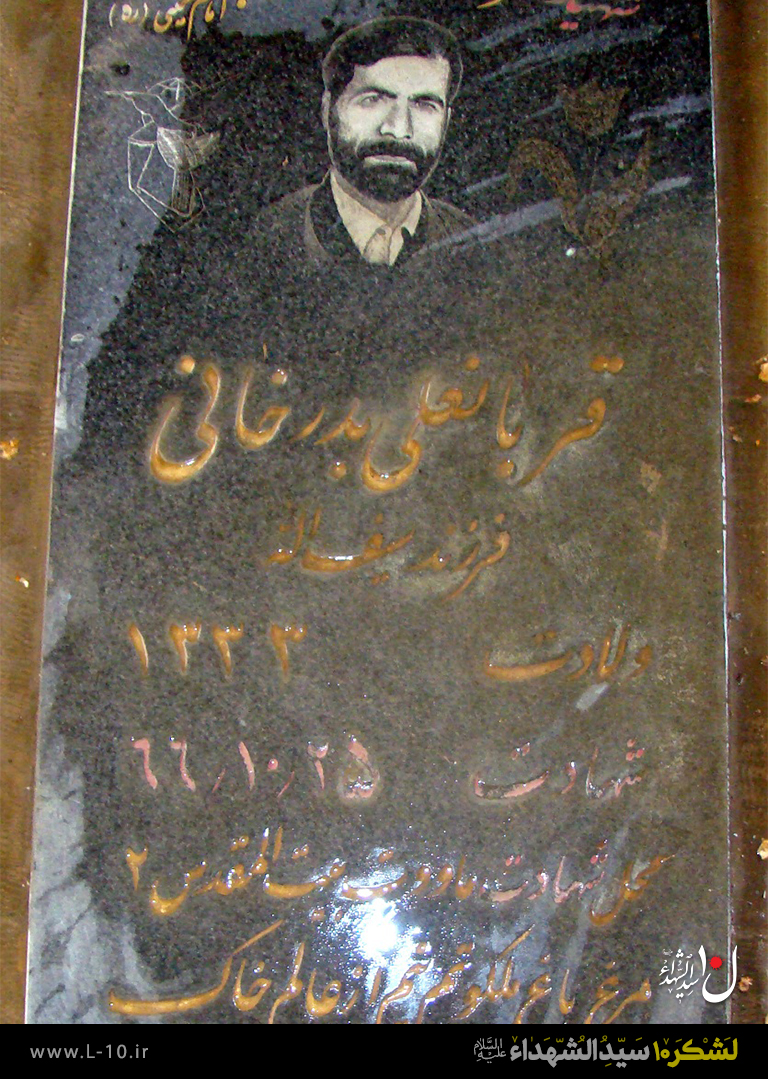 امام خمینی (ره)
شهید
قربانعلی بدرخانی
فرزند سیف اله
ولادت ۱۳۳۳
شهادت ۶۶/۱۰/۲۵
محل شهادت، ماووت بیت المقدس ۲
مرغ باغ ملکوتم نیم از عالم خاک
سیدالشهداء
لَشکَر۱۰ سَیِّدُالشُّهَداءِ علیه السَّلام
www.L-10.ir